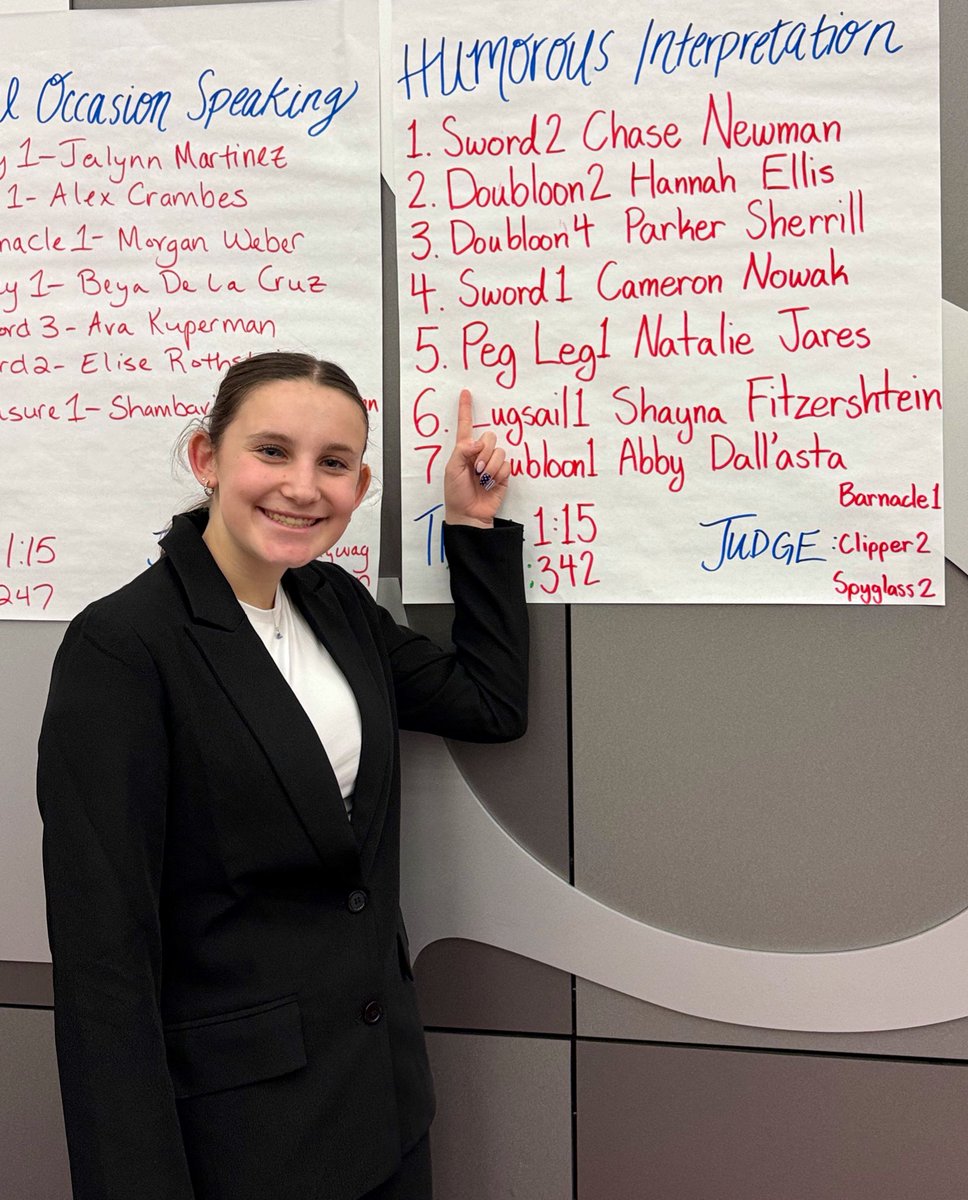 Occasion Speaking
1-Jalynn Martinez
1- Alex Crambes
nacle 1- Morgan Weber
y 1- Beya De La Cruz
ord 3- Ava Kuperman
rd 2- Elise Roths
asure 1- Shambavi
1:15
247
Humorous Interpretation
1. Sword 2 Chase Newman
2. Doubloon 2 Hannah Ellis
3. Doubloon 4 Parker Sherrill
4. Sword 1 Cameron Nowak
5. Peg Leg 1 Natalie Jares
6. Lugsail 1 Shayna Fitzershtein
7 ubloon 1 Abby Dall'asta
1:15
:342
JUDGE :
Barnacle 1
Clipper 2
Spyglass 2